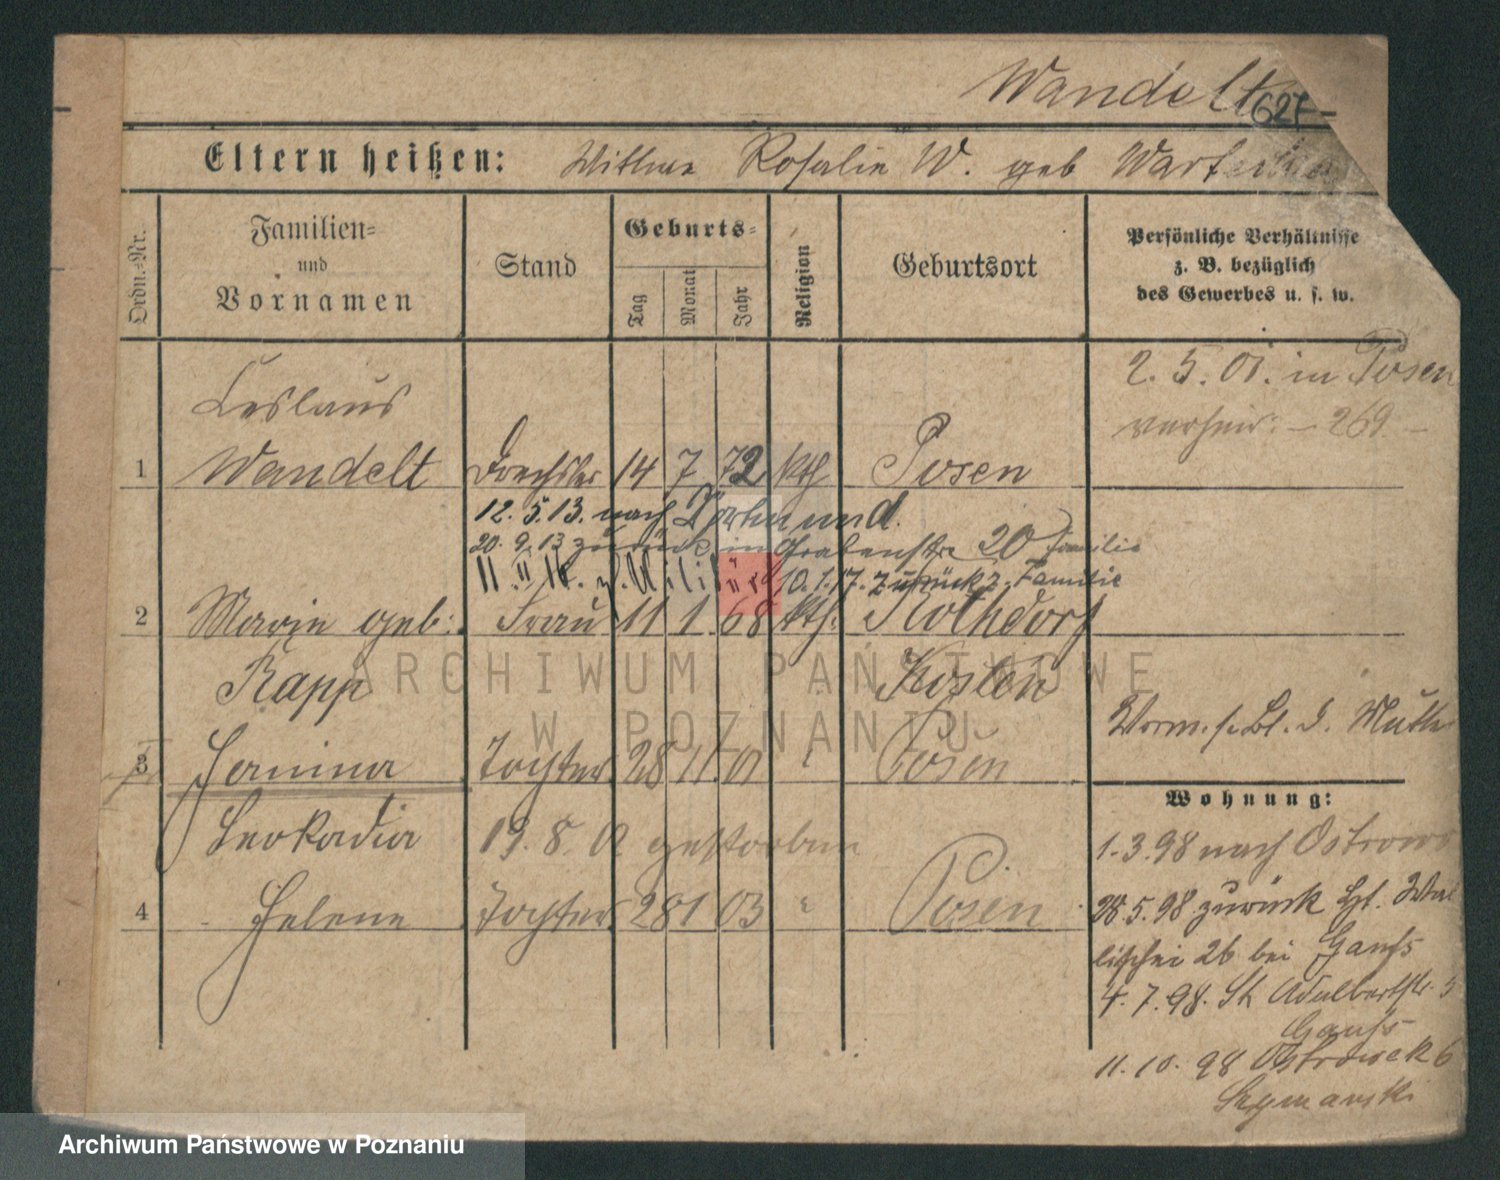 Wandelt 627
Eltern heißen: Wittwe Rosalie W. geb
Ordn.=Nr.
Familien=
und
Vornamen
Stand
Geburts=
Tag
Monat
Jahr
Religion
Geburtsort
Persönliche Verhältnisse
z. B. bezüglich
des Gewerbes u. s. w.
2. 5. 01. in Posen
verheir. – 269 –
Ceslaus
1 Wandelt Drechsler 14 7 72 kth Posen
12. 5. 13. nach Dortmund.
20. 9. 13 zurück in Grabenstr 20 Familie
10. 1. 17. zurück z. Familie
2 Marie geb: Frau 11 1 68 kth. Rothdorf
Rapp Kosten
Vorm. s. Bl. d. Mutter
3 Janina Tochter 28 11 01 " Posen
Wohnung:
Leokadia 19. 8. 02 gestorben
1. 3. 98 nach Ostrowo
4 Helene Tochter 28 1 03 " Posen
28. 5. 98 zurück Wal
lischei 26 bei Ganss
4. 7. 98. St Adalbertstr. 5
Ganss
11. 10. 98 Ostrowek 6
Szymanski
ARCHIWUM PAŃSTWOWE
W POZNANIU
Archiwum Państwowe w Poznaniu